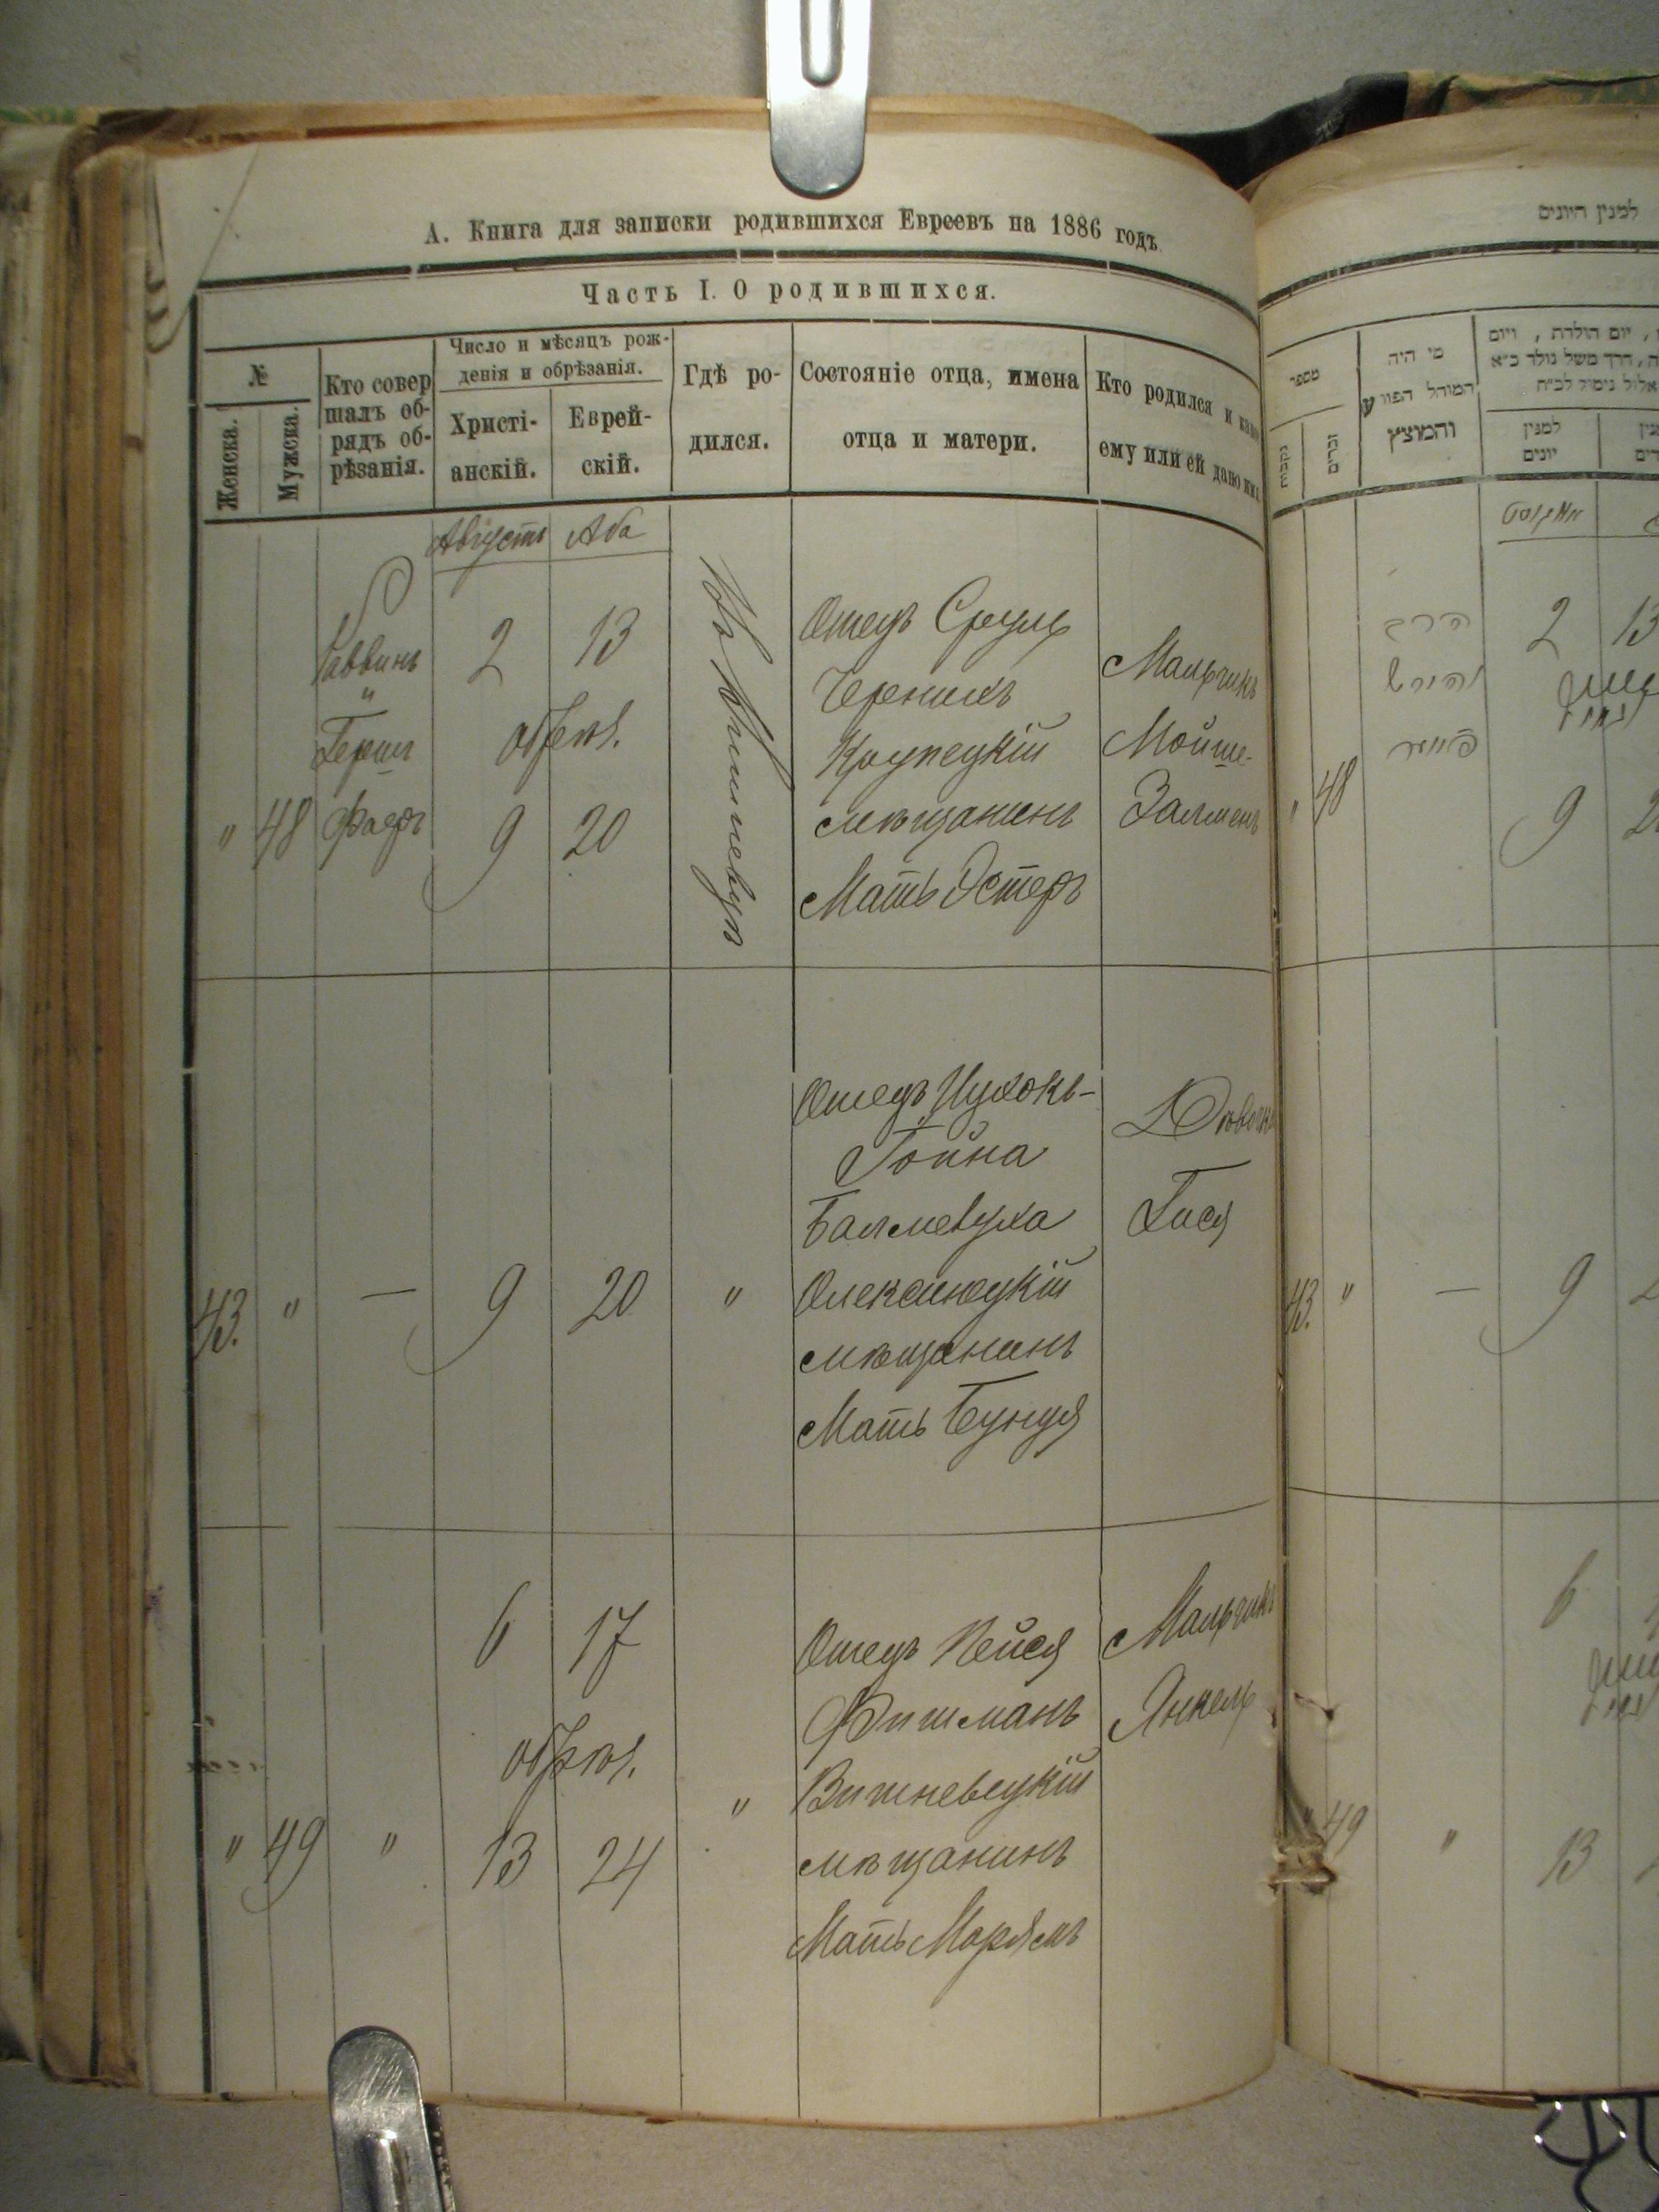 А. Книга для записки родившихся Евреевъ на 1886 годъ.
Часть I. О родившихся.
№
Женска.
Мужска.
Кто совер
шалъ об-
рядъ об-
рѣзанія.
Число и мѣсяцъ рож-
денія и обрѣзанія.
Христі-
анскій.
Еврей-
скій.
Гдѣ ро-
дился.
Состояніе отца, имена
отца и матери.
Кто родился и како
ему или ей дано им
Августъ Аба
" 48
Раввинъ
"
Герш
Фаеръ
2 13
обрѣз.
9 20
Въ Вишневцѣ
Отецъ Сруль
Черникъ
Крупецкій
мѣщанинъ
Мать Эстеръ
Мальчикъ
Мойше-
Залменъ
43. " — 9 20 "
Отецъ Ицхокъ-
Тойна
Балмевуха
Олексинецкій
мѣщанинъ
Мать Бунця
Дѣвочка
Гися
" 49 "
6 17
обрѣз.
13 24
"
Отецъ Пейся
Фишманъ
Вишневецкій
мѣщанинъ
Мать Марямъ
Мальчикъ
Янкель
למנין היונים
מספר
נקבות
זכרים
מי היה
המוהל הפורע
והמוצץ
, יום הולדת , ויום
למנין
יונים
אויגוסט
" 48
2 13
9 2
43. " — 9
6
49 " 13